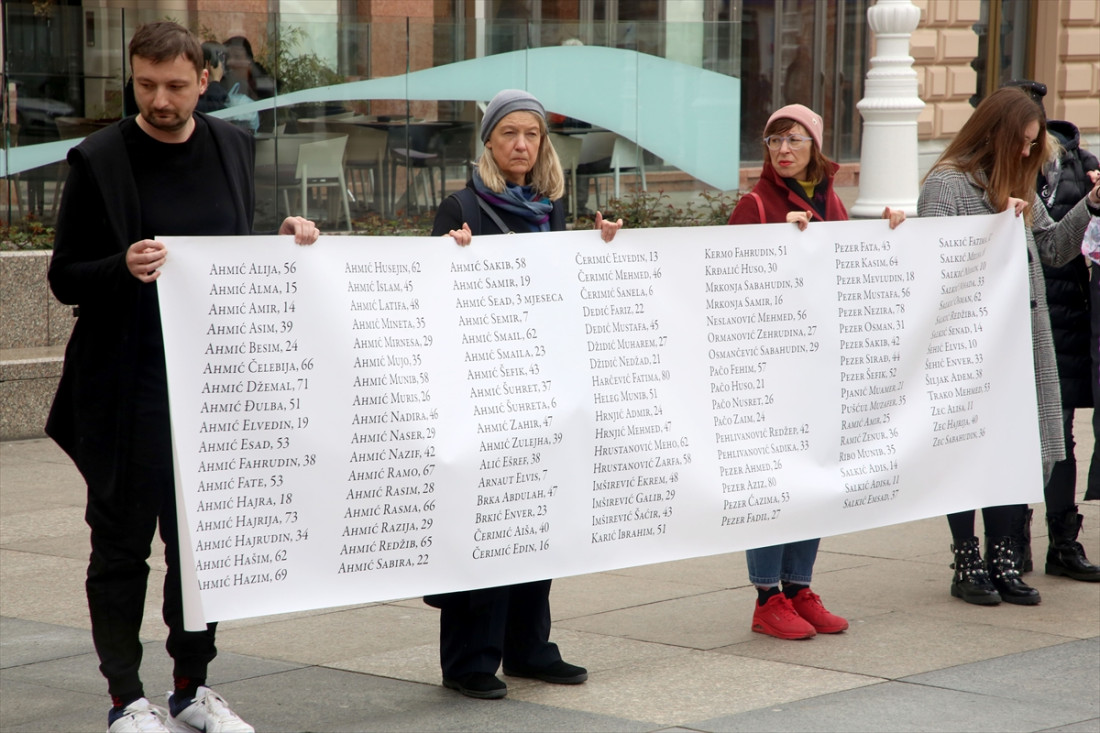 Ahmić Alija, 56
Ahmić Alma, 15
Ahmić Amir, 14
Ahmić Asim, 39
Ahmić Besim, 24
Ahmić Čelebija, 66
Ahmić Džemal, 71
Ahmić Đulba, 51
Ahmić Elvedin, 19
Ahmić Esad, 53
Ahmić Fahrudin, 38
Ahmić Fate, 53
Ahmić Hajra, 18
Ahmić Hajrija, 73
Ahmić Hajrudin, 34
Ahmić Hašim, 62
Ahmić Hazim, 69
Ahmić Husejin, 62
Ahmić Islam, 45
Ahmić Latifa, 48
Ahmić Mineta, 35
Ahmić Mirnesa, 29
Ahmić Mujo, 35
Ahmić Munib, 58
Ahmić Muris, 26
Ahmić Nadira, 46
Ahmić Naser, 29
Ahmić Nazif, 42
Ahmić Ramo, 67
Ahmić Rasim, 28
Ahmić Rasma, 66
Ahmić Razija, 29
Ahmić Redžib, 65
Ahmić Sabira, 22
Ahmić Sakib, 58
Ahmić Samir, 19
Ahmić Sead, 3 mjeseca
Ahmić Semir, 7
Ahmić Smail, 62
Ahmić Smaila, 23
Ahmić Šefik, 43
Ahmić Šuhret, 37
Ahmić Šuhreta, 6
Ahmić Zahir, 47
Ahmić Zulejha, 39
Alić Ešref, 38
Arnaut Elvis, 7
Brka Abdulah, 47
Brkić Enver, 23
Čerimić Aiša, 40
Čerimić Edin, 16
Čerimić Elvedin, 13
Čerimić Mehmed, 46
Čerimić Sanela, 6
Dedić Fariz, 22
Dedić Mustafa, 45
Džidić Muharem, 27
Džidić Nedžad, 21
Harčević Fatima, 80
Heleg Munib, 51
Hrnjić Admir, 24
Hrnjić Mehmed, 47
Hrustanović Meho, 62
Hrustanović Zarfa, 58
Imširević Ekrem, 48
Imširević Galib, 29
Imširević Šaćir, 43
Karić Ibrahim, 51
Kermo Fahrudin, 51
Krdalić Huso, 30
Mrkonja Sabahudin, 38
Mrkonja Samir, 16
Neslanović Mehmed, 56
Ormanović Zehrudina, 27
Osmančević Sabahudin, 29
Pačo Fehim, 57
Pačo Huso, 21
Pačo Nusret, 26
Pačo Zaim, 24
Pehlivanović Redžep, 42
Pehlivanović Sadika, 33
Pezer Ahmed, 26
Pezer Aziz, 80
Pezer Ćazima, 53
Pezer Fadil, 27
Pezer Fata, 43
Pezer Kasim, 64
Pezer Mevludin, 18
Pezer Mustafa, 56
Pezer Nezira, 78
Pezer Osman, 31
Pezer Sakib, 42
Pezer Sirad, 44
Pezer Šefik, 52
Pjanić Muamer, 21
Puščul Muzafek, 35
Ramić Amir, 25
Ramić Zenur, 36
Ribo Munib, 35
Salkić Adis, 14
Salkić Adisa, 11
Salkić Emsad, 37
Salkić Fatima,
Salkić
Salkić 10
Salkić 33
Salkić 62
Salkić Redžiba, 55
Salkić Senad, 14
Šehić Elvis, 10
Šehić Enver, 33
Šiljak Adem, 38
Trako Mehmed, 53
Zec Alisa, 11
Zec Hajrija, 40
Zec Sabahudin, 36